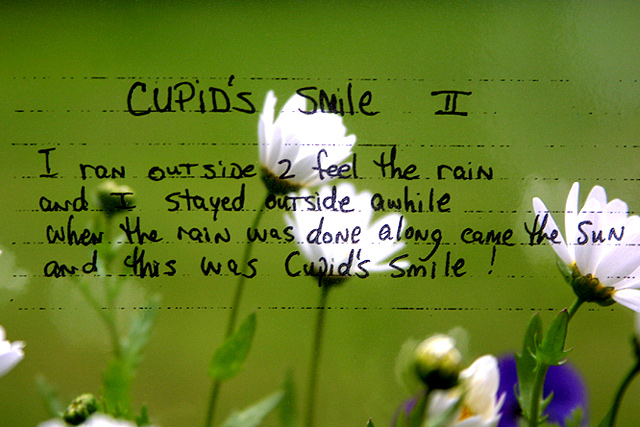 CUPiD's Smile II
I ran outside 2 feel the rain
and I stayed outside awhile
when the rain was done along came the sun
and this was Cupid's Smile !